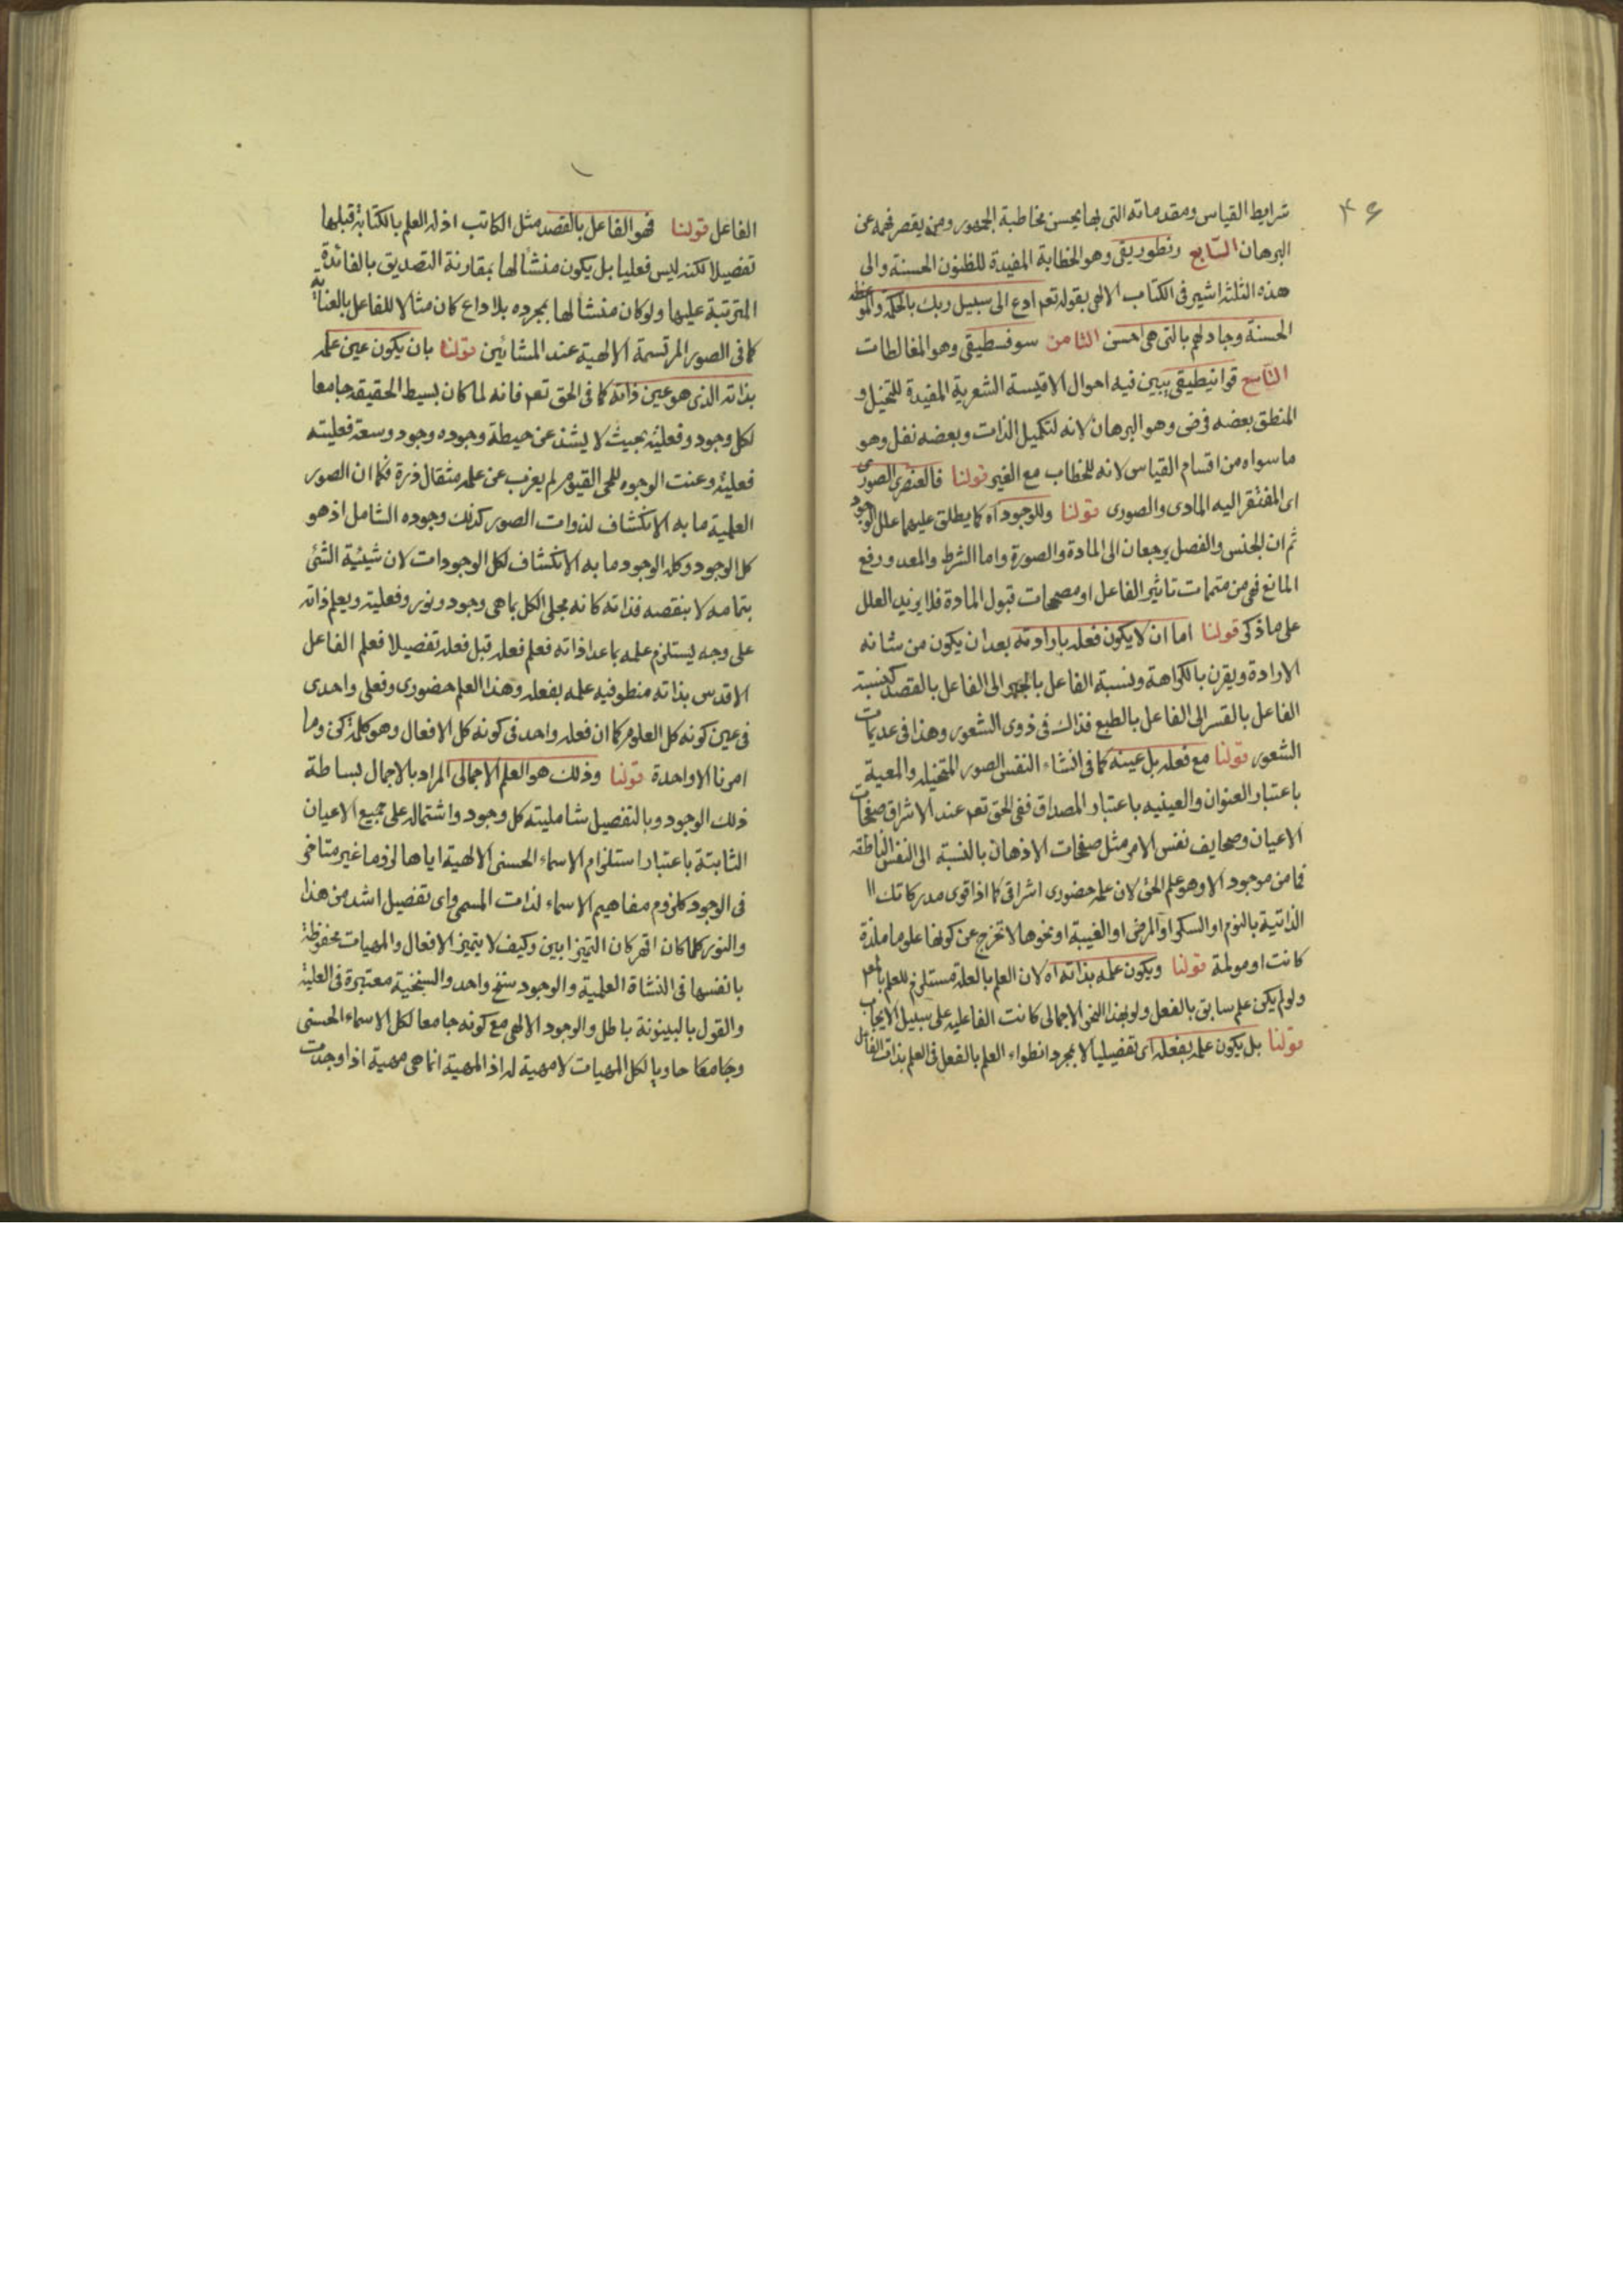 ۴۶
شرايط القياس ومقدماته التى بها يحسن مخاطبة الجمهور ومن يقصر فهمه عن
البرهان السابع ريطوريقى وهو الخطابة المفيدة للظنون الحسنة والى
هذه الثلثة اشير فى الكتاب الالهى بقوله تعم ادع الى سبيل ربك بالحكمة والموعظة
الحسنة وجادلهم بالتى هى احسن الثامن سوفسطيقى وهو المغالطات
التاسع قوانيطيقى يبين فيه احوال الاقيسة الشعرية المفيدة للتخيل و
المنطق بعضه فرض وهو البرهان لانه لتكميل الذات وبعضه نفل وهو
ما سواه من اقسام القياس لانه للخطاب مع الغير قولنا فالعنصرى الصورى
اى المفتقر اليه المادى والصورى قولنا وللوجود اه كما يطلق عليهما علل الوجود
ثم ان الجنس والفصل يرجعان الى المادة والصورة واما الشرط والمعد ورفع
المانع فهى من متممات تاثير الفاعل او مصححات قبول المادة فلا يزيد العلل
على ما ذكر قولنا اما ان لا يكون فعله بارادته بعد ان يكون من شانه
الارادة ويقرن بالكراهة ونسبة الفاعل بالجبر الى الفاعل بالقصد كنسبة
الفاعل بالقسر الى الفاعل بالطبع فذاك فى ذوى الشعور وهذا فى عديمات
الشعور قولنا مع فعله بل عينه كما فى انشاء النفس الصور المتخيله والمعية
باعتبار العنوان والعينيه باعتبار المصداق ففى الحق تعم عند الاشراق صفحات
الاعيان وصحايف نفس الامر مثل صفحات الاذهان بالنسبة الى النفس الناطقه
فما من موجود الا وهو علم الحق لان علمه حضورى اشراقى كما اذا قوى مدركاتك
الذاتية بالنوم او السكر او المرض او الغيبة او نحوها لا تخرج عن كونها علوما ملذة
كانت او مولمة قولنا ويكون علمه بذاته اه لان العلم بالعلة مستلزم للعلم بالمعلول
ولو لم يكن علم سابق بالفعل ولو بهذا النحو الاجمالى كانت الفاعليه على سبيل الايجاب
قولنا بل يكون علمه بفعله اى تفصيليا لا بمجرد انطواء العلم بالفعل فى العلم بذات الفاعل
الفاعل قولنا فهو الفاعل بالقصد مثل الكاتب اذ له العلم بالكتابة قبلها
تفصيلا لكنه ليس فعليا بل يكون منشأ لها بمقارنة التصديق بالفائدة
المترتبة عليها ولو كان منشأ لها بمجرده بلا داع كان مثالا للفاعل بالعناية
كما فى الصور المرتسمة الالهية عند المشائين قولنا بان يكون عين علمه
بذاته الذى هو عين ذاته كما فى الحق تعم فانه لما كان بسيط الحقيقه جامعا
لكل وجود وفعلية بحيث لا يشذ عن حيطة وجوده وجود وسعة فعليته
فعلية وعنت الوجوه للحى القيوم لم يعزب عن علمه مثقال ذرة فكما ان الصور
العلمية ما به الانكشاف لذوات الصور كذلك وجوده الشامل اذ هو
كل الوجود وكله الوجود ما به الانكشاف لكل الوجودات لان شيئية الشئ
بتمامه لا بنقصه فذاته كانه مجلى الكل بما هى وجود ونور وفعلية ويعلم ذاته
على وجه يستلزم علمه بما عدا ذاته فعلم فعله قبل فعله تفصيلا فعلم الفاعل
الاقدس بذاته منطو فيه علمه بفعله وهذا العلم حضورى وفعلى واحدى
فى عين كونه كل العلوم كما ان فعله واحد فى كونه كل الافعال وهو كلمة كن وما
امرنا الا واحدة قولنا وذلك هو العلم الاجمالى المراد بالاجمال بساطة
ذلك الوجود وبالتفصيل شامليته كل وجود واشتماله على جميع الاعيان
الثابتة باعتبار استلزام الاسماء الحسنى الالهية اياها لزوما غير متاخر
فى الوجود كلزوم مفاهيم الاسماء لذات المسمى واى تفصيل اشد من هذا
والنور كلما كان اقهر كان التميز ابين وكيف لا يتميز الافعال والمهيات محفوظة
بانفسها فى النشاة العلمية والوجود سنخ واحد والسنخية معتبرة فى العلية
والقول بالبينونة باطل والوجود الالهى مع كونه جامعا لكل الاسماء الحسنى
وبجامعا حاويا لكل المهيات لا مهية له اذ المهية انما هى مهية اذا وجدت